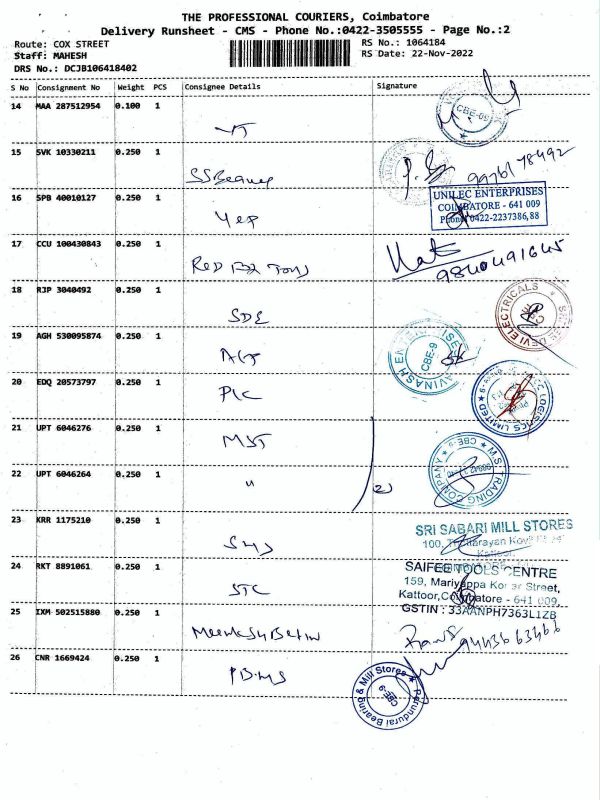 THE PROFESSIONAL COURIERS, Coimbatore
Delivery Runsheet - CMS - Phone No.:0422-3505555 - Page No.:2
Route: COX STREET RS No.: 1064184
Staff: MAHESH RS Date: 22-Nov-2022
DRS No.: DCJB106418402
S No Consignment No Weight PCS Consignee Details Signature
14 MAA 287512954 0.100 1
VT
CBE-09
15 SVK 10330211 0.250 1
SSBearing
16 SPB 40010127 0.250 1
Yep
UNILEC ENTERPRISES
COIMBATORE - 641 009
Phone: 0422-2237386,88
17 CCU 100430843 0.250 1
18 RJP 3040492 0.250 1
SDE
DEVI ELECTRICALS
19 AGH 530095874 0.250 1
AVINASH
CBE-9
20 EDQ 20573797 0.250 1
PLC
LOGISTICS LIMITED
21 UPT 6046276 0.250 1
MST
22 UPT 6046264 0.250 1
"
2)
M.S. TRADING COMPANY
CBE-9
23 KRR 1175210 0.250 1
SMS
SRI SABARI MILL STORES
100,
Kattoor
24 RKT 8891061 0.250 1
STC
SAIFEE TOOLS CENTRE
159, Mariyappa Konar Street,
Kattoor, Coimbatore - 641 009
GSTIN : 33AANPH7363L1ZB
25 IXM 502515880 0.250 1
26 CNR 1669424 0.250 1
PBMS
Perundurai Bearing & Mill Stores
CBE-9